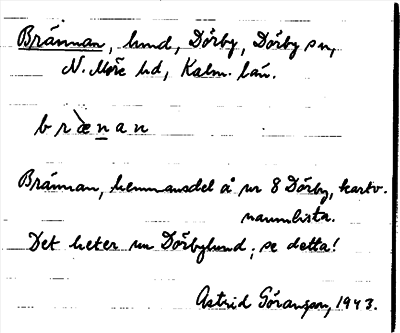 Brännan, lund, Dörby, Dörby sn,
N. Möre hd, Kalm. län.
bræ̀nan
Brännan, hemmansdel å nr 8 Dörby, kartv.
namnlista.
Det heter nu Dörbylund, se detta!
Astrid Göransson, 1943.